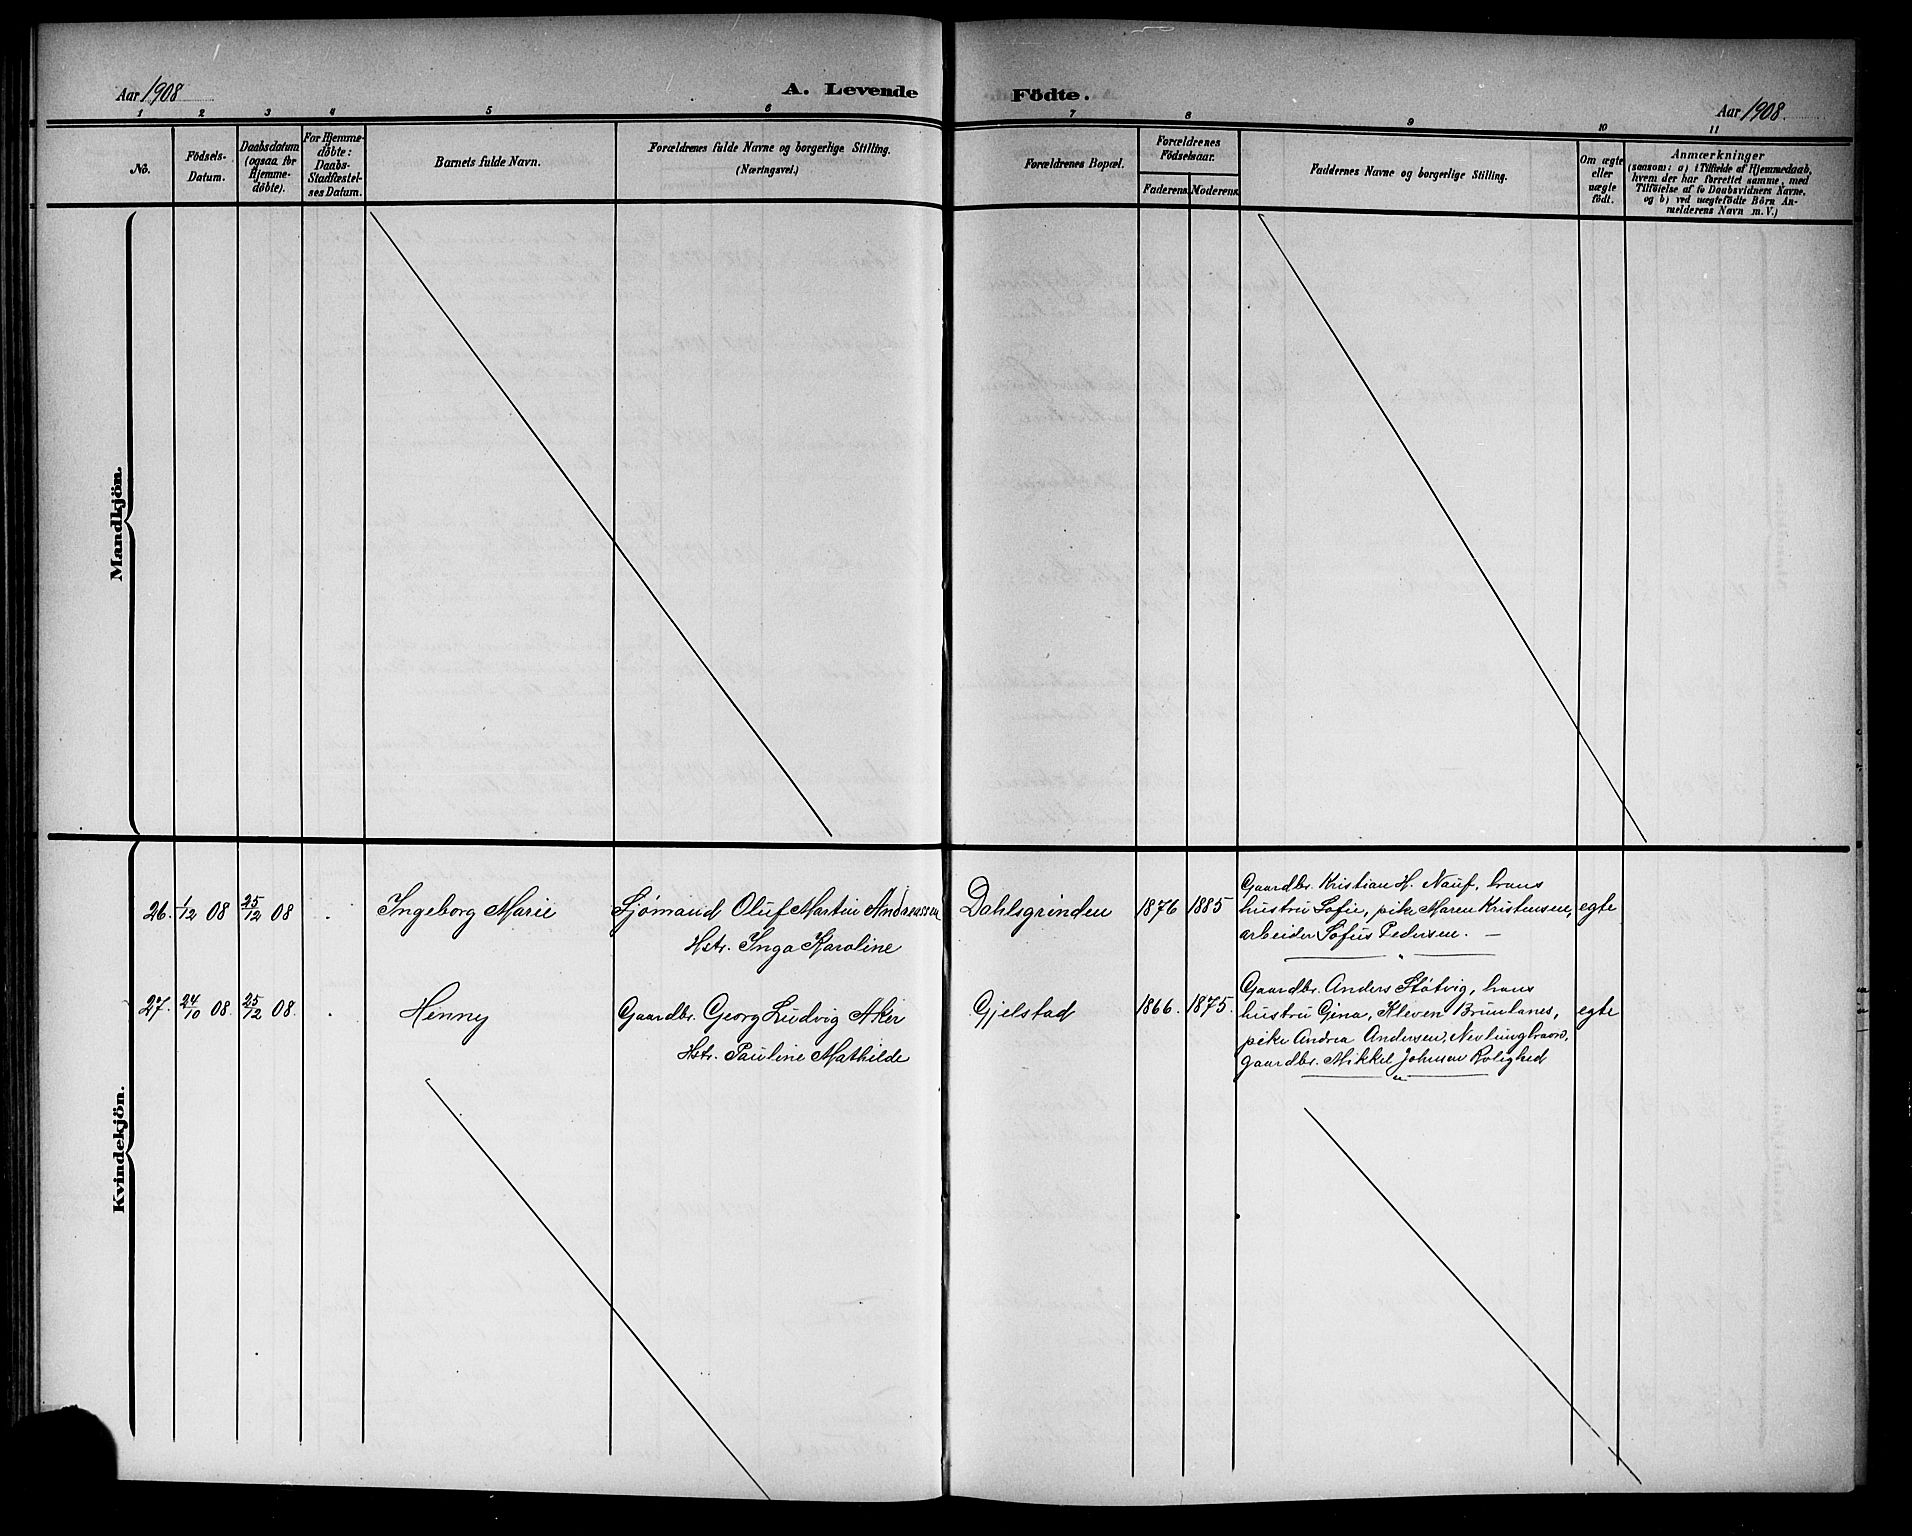 Aar 1908
A. Levende Födte.
Aar 1908.
1 2 3 4 5 6 7 8 9 10 11
No.
Födsels-
Datum.
Daabsdatum
(ogsaa for
Hjemme-
döbte).
For Hjemme-
döbte:
Daabs-
Stadfæstel-
ses Datum.
Barnets fulde Navn.
Forældrenes fulde Navne og borgerlige Stilling.
(Næringsvei.)
Forældrenes Bopæl.
Forældrenes
Födselsaar.
Faderens. Moderens.
Faddernes Navne og borgerlige Stilling.
Om ægte
eller
uægte
födt.
Anmærkninger
(saasom: a) i Tilfælde af Hjemmedaab,
hvem der har forrettet samme, med
Tilföielse af to Daabsvidners Navne.
og b) ved uægtefödte Börn An-
melderens Navn m. V.)
Mandkjön.
Kvindekjön.
26. 1/12 08 25/12 08 . Ingeborg Marie
Sjömand Oluf Martin Andreassen
Hstr. Inga Karoline
Dahlsgrinden 1876 1885
Gaardbr. Kristian H. Nauf, hans
hustru Sofie, pike Maren Kristensen,
arbeider Sofus Pedersen. —
egte
27. 24/10 08. 25/12 08. . Henny
Gaardbr. Georg Ludvig Aker
Hstr. Pauline Mathilde
Gjelstad 1866. 1875.
Gaardbr. Anders Stötvig, hans
hustru Gina, Kleven Brunlanes,
pike Andrea Andersen, Nevlunghavn,
gaardbr. Mikkel Johnsen Rolighed
egte